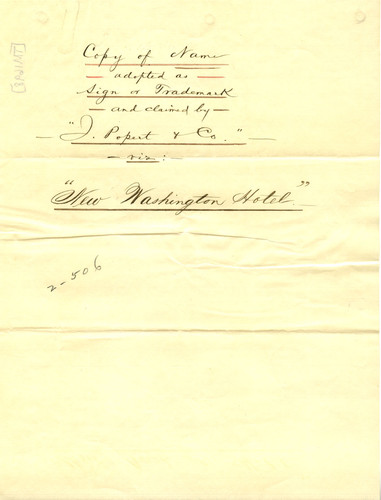 Copy of Name
adopted as
Sign or Trademark
and claimed by
"J. Popert & Co."
viz:
"New Washington Hotel."
2-506